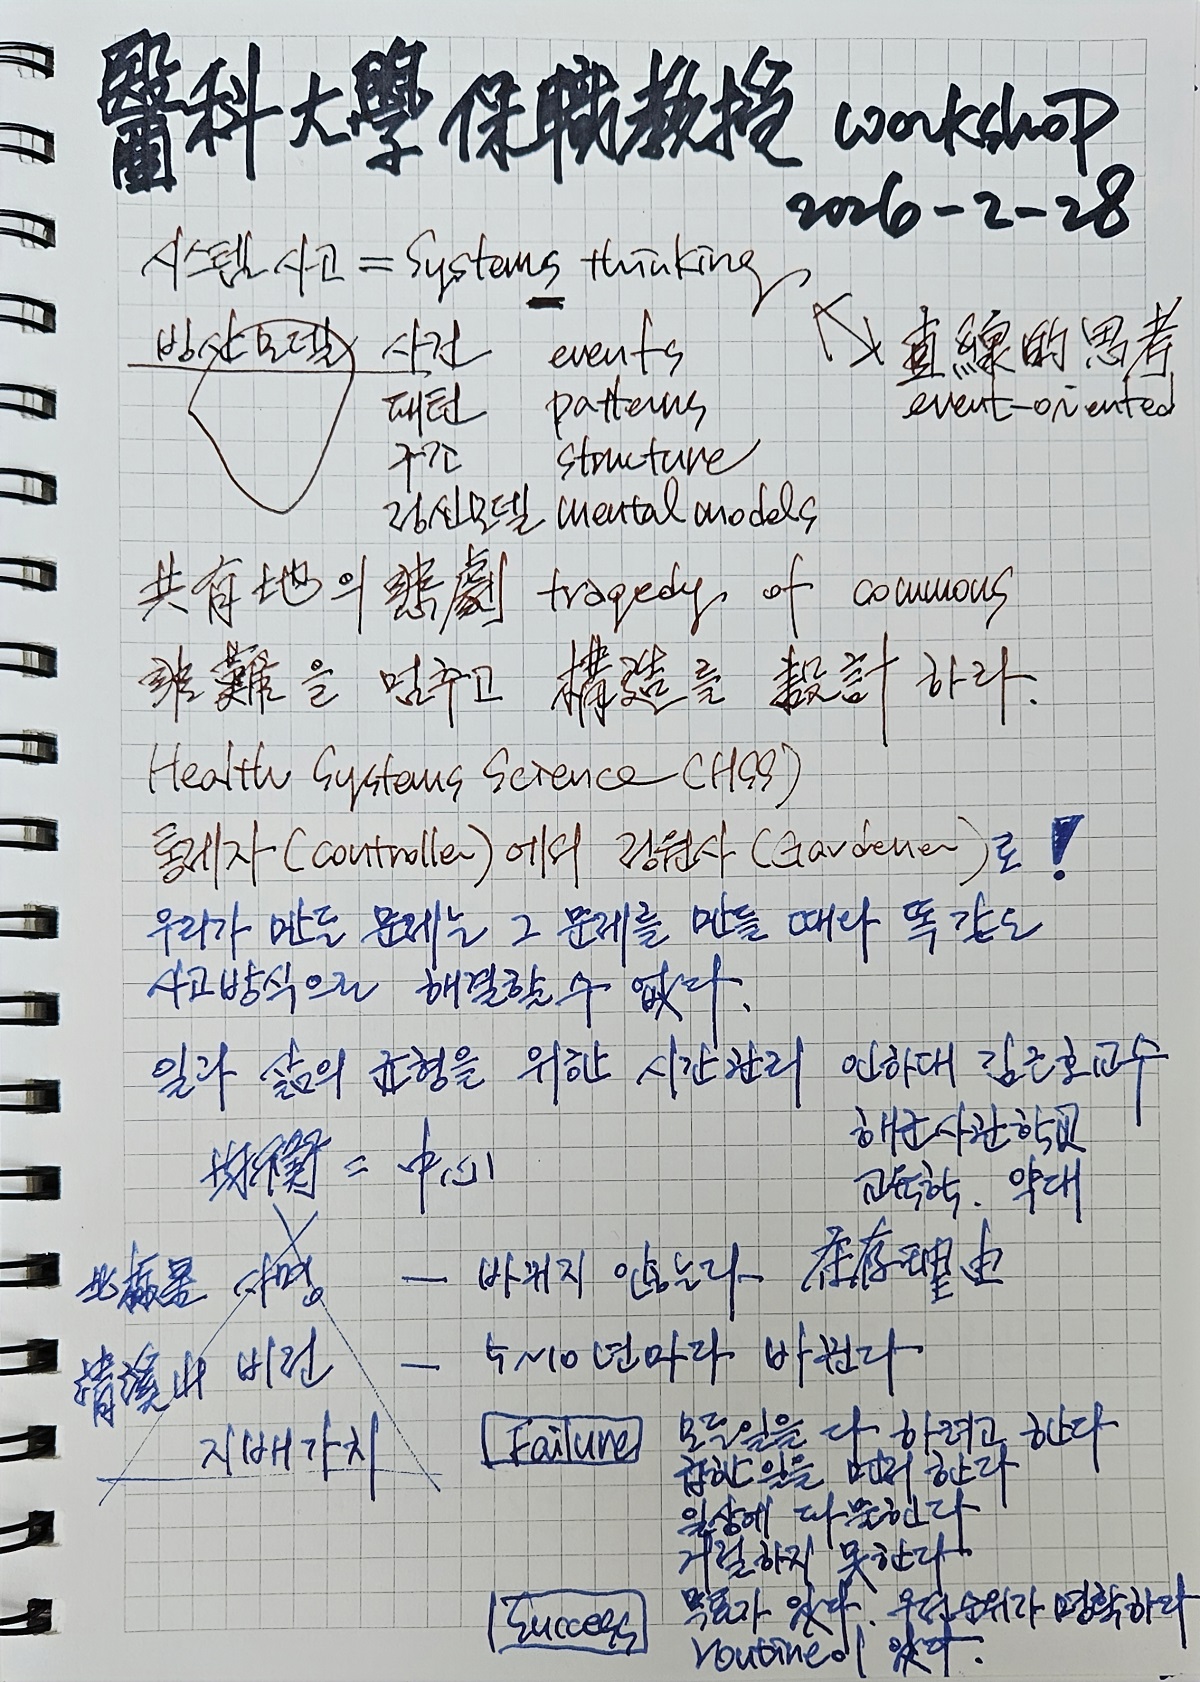 醫科大學 保職教授 workshop
2026-2-28
시스템 사고 = Systems thinking
빙산모델 사건 events
直線的 思考
패턴 patterns
event-oriented
구조 structure
정신모델 mental models
共有地의 悲劇 tragedy of commons
非難을 멈추고 構造를 設計하라.
Health Systems Science (HSS)
통제자(controller)에서 정원사(Gardener)로!
우리가 만든 문제는 그 문제를 만들 때와 똑같은
사고방식으로 해결할 수 없다.
일과 삶의 균형을 위한 시간관리 인하대 김근호교수
해군사관학교
均衡 = 中心 교육학. 약대
사명 — 바뀌지 않는다 存在理由
비전 — 5~10년마다 바뀐다
지배가치
Failure 모든일을 다 하려고 한다
급한 일을 먼저 한다
일상에 따분한다
거절하지 못한다
Success 목표가 있다. 우선순위가 명확하다
routine이 있다.